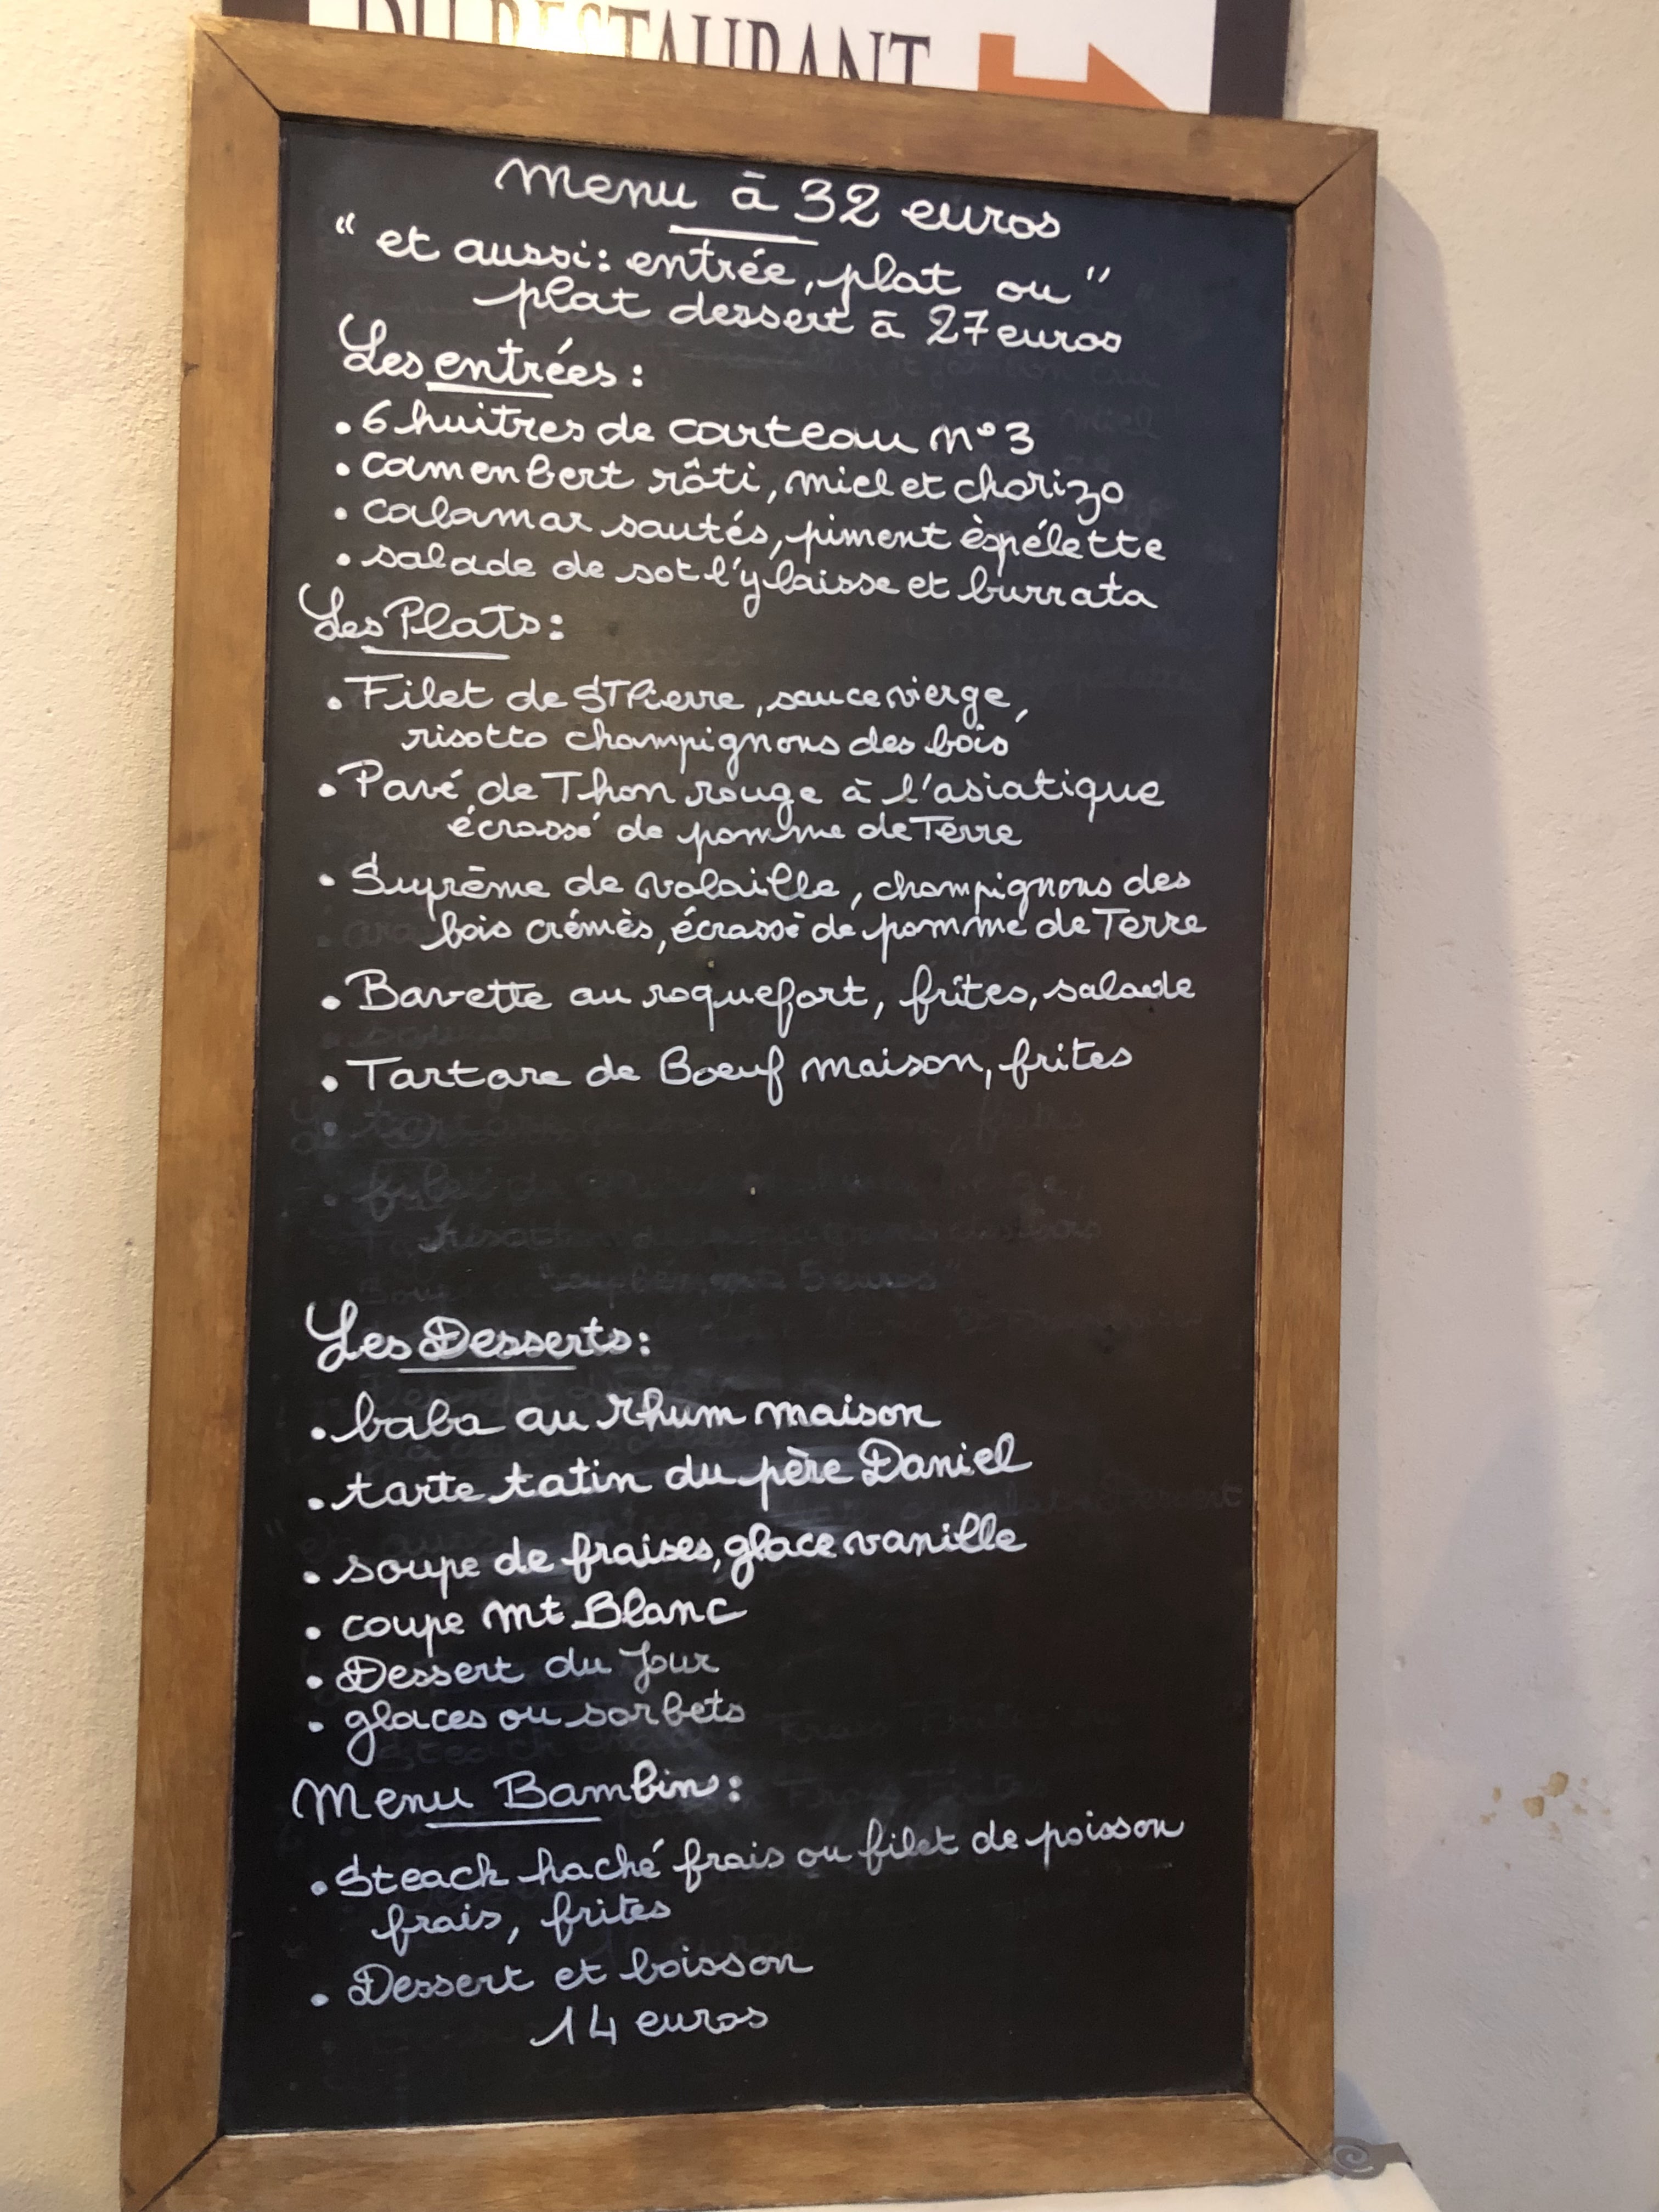 DU RESTAURANT
Menu à 32 euros
" et aussi: entrée, plat ou "
plat dessert à 27 euros
Les entrées :
. 6 huitres de carteau n°3
. camenbert rôti, miel et chorizo
. calamar sautés, piment èspélette
. salade de sot l'y laisse et burrata
Les Plats :
. Filet de ST Pierre, sauce vierge,
risotto champignons des bois
. Pavé de Thon rouge à l'asiatique
écrassé de pomme de Terre
. Suprême de volaille, champignons des
bois crémès, écrassé de pomme de Terre
. Bavette au roquefort, frites, salade
. Tartare de Boeuf maison, frites
Les Desserts :
. baba au rhum maison
. tarte tatin du père Daniel
. soupe de fraises, glace vanille
. coupe Mt Blanc
. Dessert du Jour
. glaces ou sorbets
Menu Bambins :
. Steack haché frais ou filet de poisson
frais, frites
. Dessert et boisson
14 euros